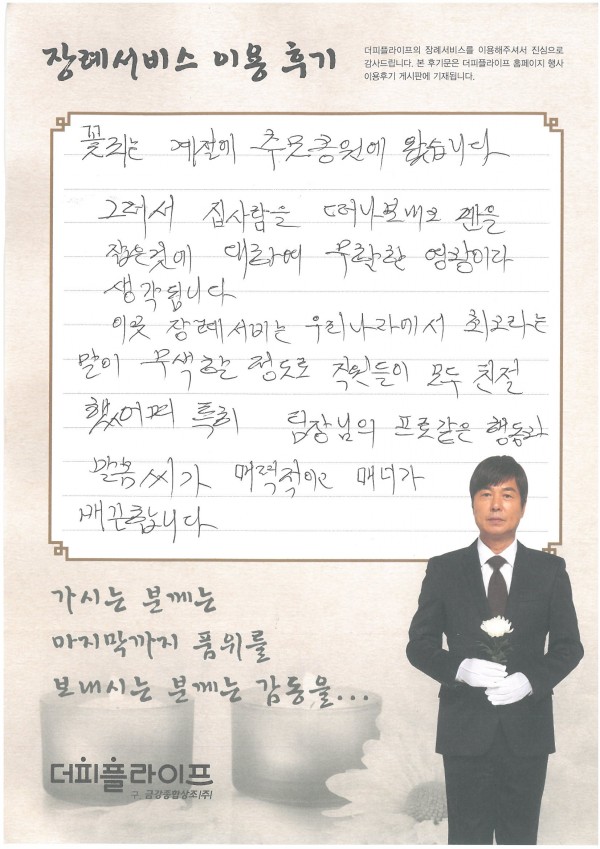 장례서비스 이용 후기
더피플라이프의 장례서비스를 이용해주셔서 진심으로
감사드립니다. 본 후기문은 더피플라이프 홈페이지 행사
이용후기 게시판에 기재됩니다.
꽃피는 계절에 추모공원에 왔습니다
그래서 집사람을 떠나보내고 펜을
잡은것에 대하여 무한한 영광이라
생각됩니다
이곳 장례서비는 우리나라에서 최고라는
말이 무색할 정도로 직원들이 모두 친절
했어며 특히 팀장님의 프로같은 행동과
말솜씨가 매력적이고 매너가
배끈합니다
가시는 분께는
마지막까지 품위를
보내시는 분께는 감동을...
더피플라이프
구. 금강종합상조(주)